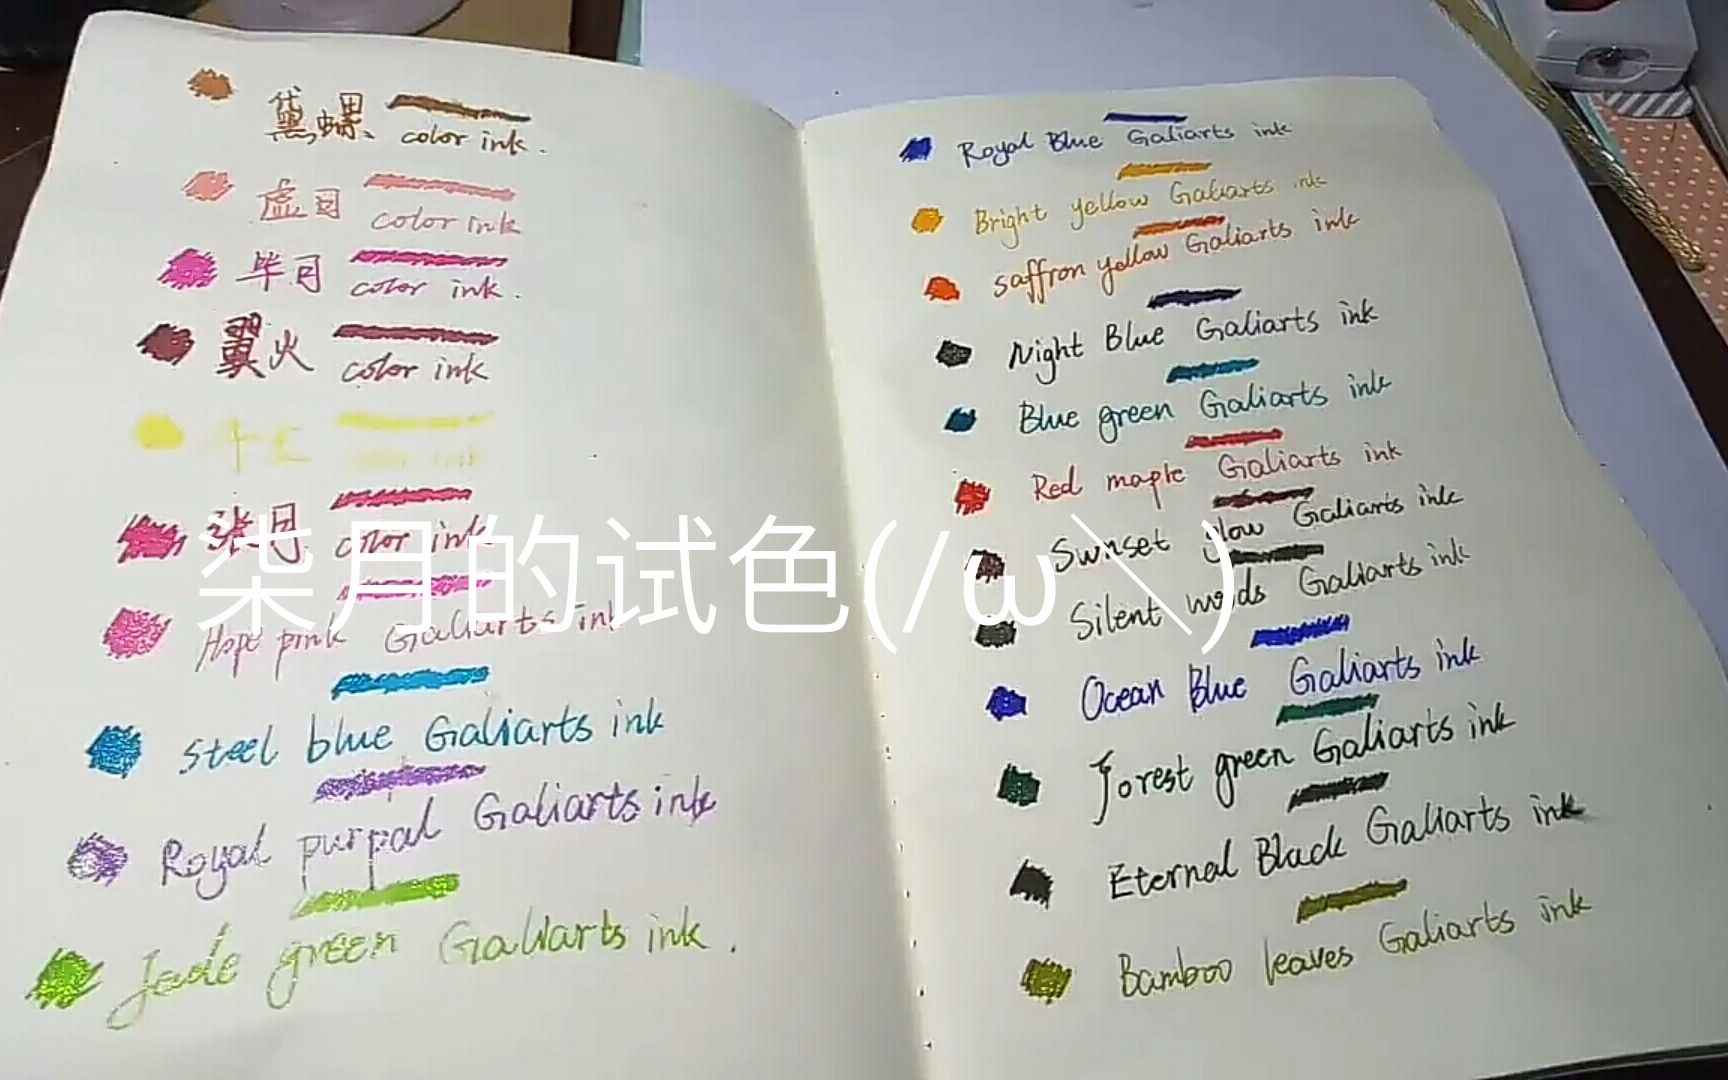 黛螺、color ink.
虚日 color ink
毕月 color ink.
翼火 color ink
color ink
张月 color ink
Hope pink Galiarts ink
Steel blue Galiarts ink
Royal purpal Galiarts ink
Jade green Galiarts ink.
Royal Blue Galiarts ink
Bright yellow Galiarts ink
saffron yellow Galiarts ink
Night Blue Galiarts ink
Blue green Galiarts ink
Red maple Galiarts ink
Sunset glow Galiarts ink
Silent woods Galiarts ink
Ocean Blue Galiarts ink
Forest green Galiarts ink
Eternal Black Galiarts ink
Bamboo leaves Galiarts ink
柒月的试色(/ω＼)